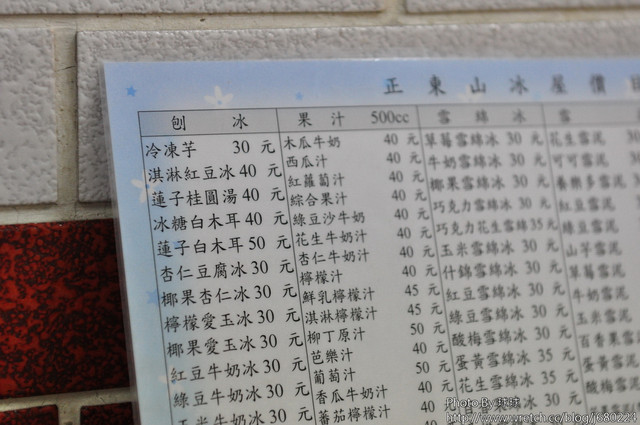 正東山冰屋價
刨冰
冷凍芋 30 元
淇淋紅豆冰 40 元
蓮子桂圓湯 40 元
冰糖白木耳 40 元
蓮子白木耳 50 元
杏仁豆腐冰 30 元
椰果杏仁冰 30 元
檸檬愛玉冰 30 元
椰果愛玉冰 30 元
紅豆牛奶冰 30 元
綠豆牛奶冰 30 元
玉米牛奶冰 30 元
果汁 500cc
木瓜牛奶 40 元
西瓜汁 40 元
紅蘿蔔汁 40 元
綜合果汁 40 元
綠豆沙牛奶 40 元
花生牛奶汁 40 元
杏仁牛奶汁 40 元
檸檬汁 40 元
鮮乳檸檬汁 45 元
淇淋檸檬汁 45 元
柳丁原汁 50 元
芭樂汁 40 元
葡萄汁 50 元
香瓜牛奶汁 40 元
蕃茄檸檬汁 40 元
雪綿冰
草莓雪綿冰 30 元
牛奶雪綿冰 30 元
椰果雪綿冰 30 元
巧克力雪綿冰 30 元
巧克力花生雪綿 35 元
玉米雪綿冰 30 元
什錦雪綿冰 30 元
紅豆雪綿冰 30 元
綠豆雪綿冰 30 元
酸梅雪綿冰 30 元
蛋黃雪綿冰 35 元
花生雪綿冰 35 元
百香果雪
雪
花生雪泥
可可雪泥
養樂多雪泥
紅豆雪泥
綠豆雪泥
山芋雪泥
草莓雪泥
牛奶雪泥
玉米雪泥
百香果雪
蛋黃雪泥
酸梅雪泥
Photo By 球球
http://www.wretch.cc/blog/j680224